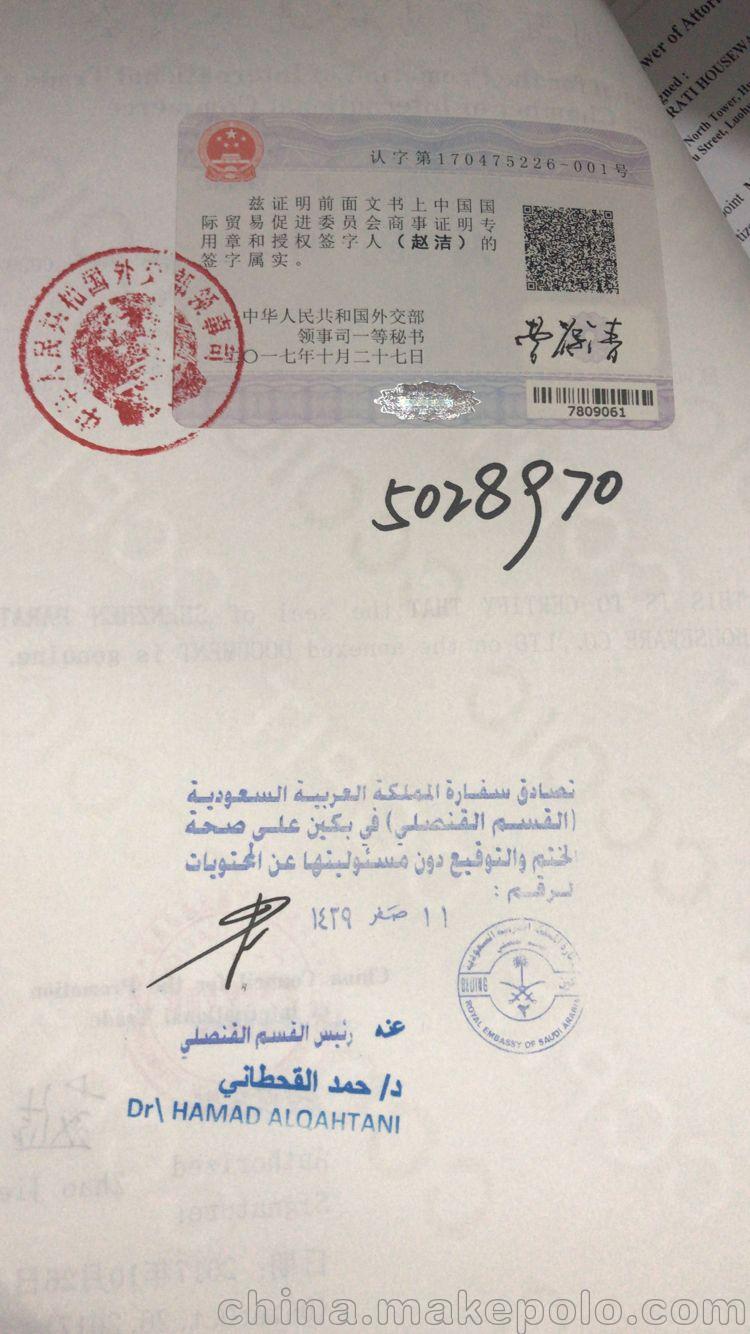 wer of Attor
gned :
RATI HOUSEWA
North Tower, H
u Street, Luoh
point
认字第170475226-001号
兹证明前面文书上中国国
际贸易促进委员会商事证明专
用章和授权签字人（赵洁）的
签字属实。
中华人民共和国外交部
领事司一等秘书
二〇一七年十月二十七日
7809061
中华人民共和国外交部领事司
5028970
THIS IS TO CERTIFY THAT the seal of SHENZHEN PARATI
HOUSEWARE CO.,LTD on the annexed DOCUMENT is genuine.
تصادق سفارة المملكة العربية السعودية
(القسم القنصلي) في بكين على صحة
الختم والتوقيع دون مسئوليتها عن المحتويات
لرقم :
١١ صفر ١٤٣٩
BEIJING
ROYAL EMBASSY OF SAUDI ARABIA
China Council for the Promotion
of International Trade
عنه رئيس القسم القنصلي
د/ حمد القحطاني
Dr\ HAMAD ALQAHTANI
Authorized
Signature:
Zhao Jie
日期: 2017年10月26日
china.makepolo.com